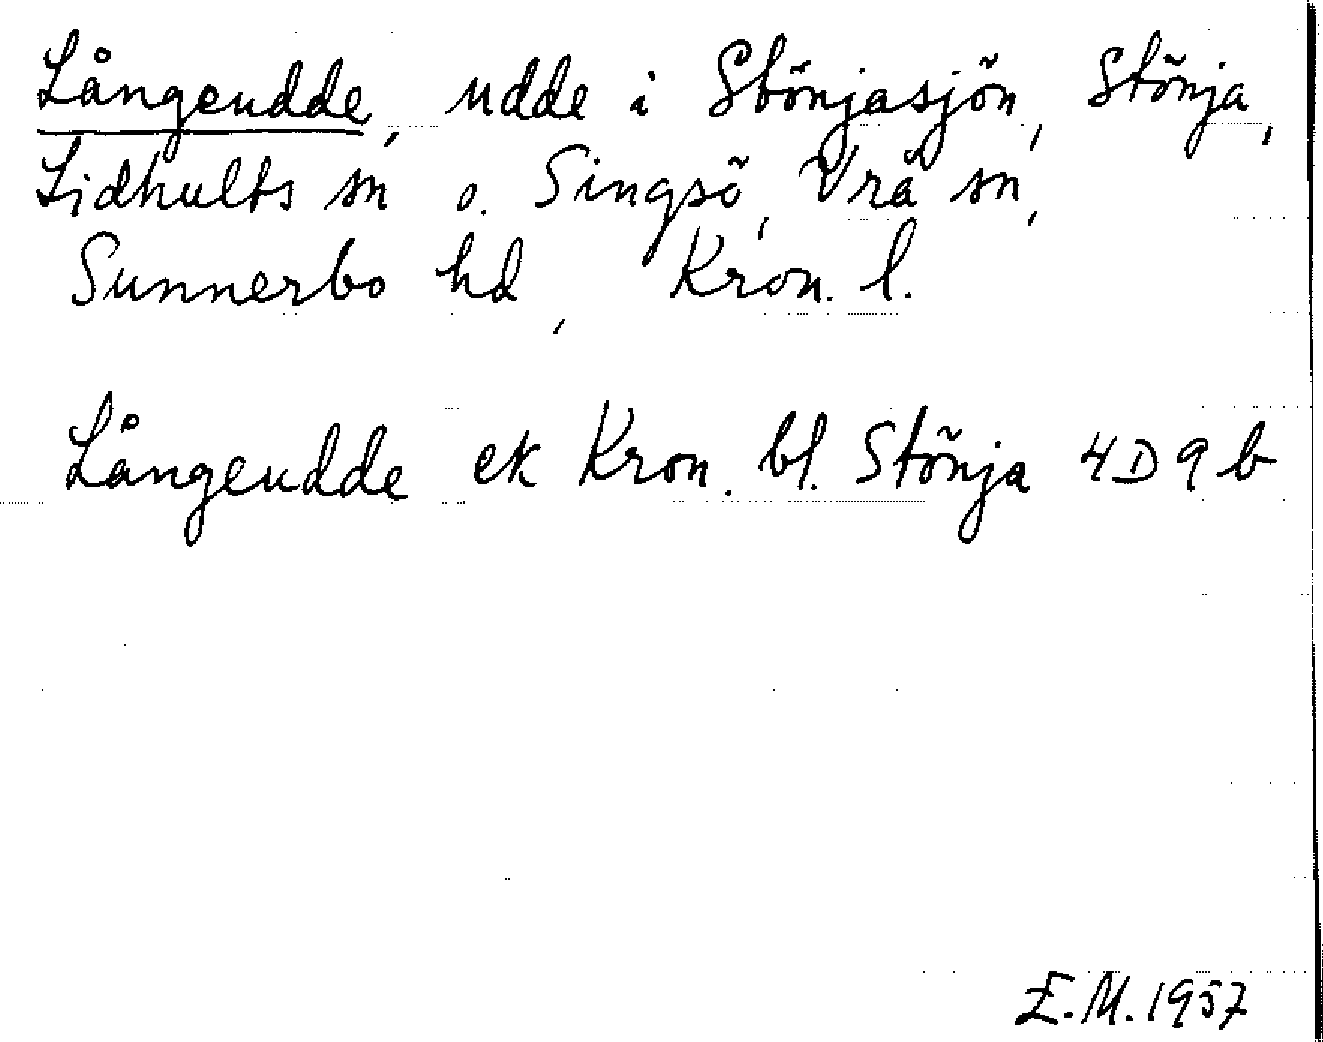 Långeudde, udde i Stönjasjön, Stönja,
Lidhults sn o. Singsö, Vrå sn,
Sunnerbo hd, Kron. l.
Långeudde ek Kron. bl. Stönja 4D9b
E.M. 1957